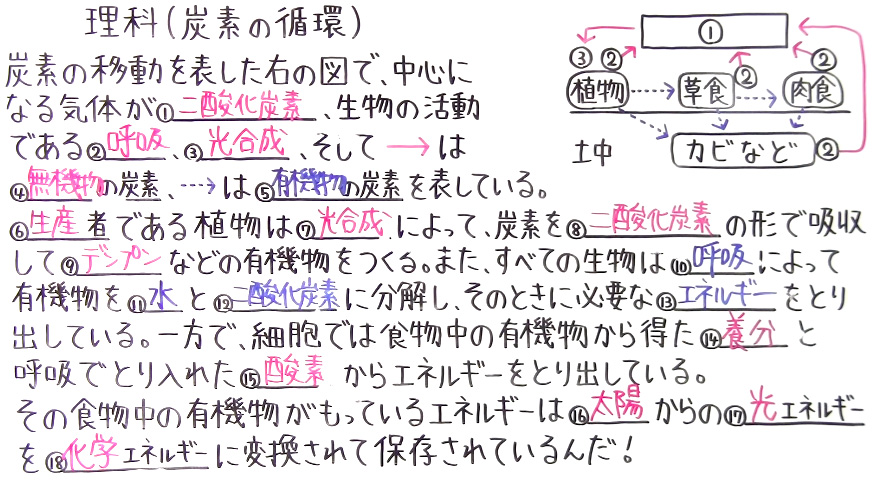 理科(炭素の循環)
炭素の移動を表した右の図で、中心に
なる気体が①二酸化炭素、生物の活動
である②呼吸、③光合成、そして→は
④無機物の炭素、⇢は⑤有機物の炭素を表している。
⑥生産者である植物は⑦光合成によって、炭素を⑧二酸化炭素の形で吸収
して⑨デンプンなどの有機物をつくる。また、すべての生物は⑩呼吸によって
有機物を⑪水と⑫二酸化炭素に分解し、そのときに必要な⑬エネルギーをとり
出している。一方で、細胞では食物中の有機物から得た⑭養分と
呼吸でとり入れた⑮酸素からエネルギーをとり出している。
その食物中の有機物がもっているエネルギーは⑯太陽からの⑰光エネルギー
を⑱化学エネルギーに変換されて保存されているんだ!
①
③ ② ② ②
植物 草食 肉食
土中 カビなど ②